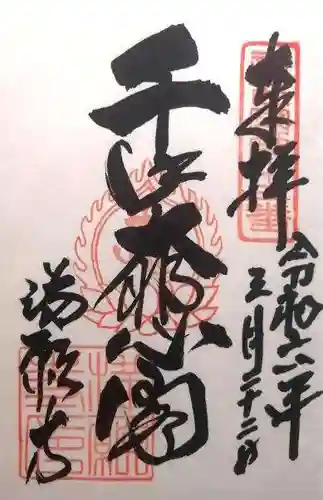 奉拝
令和六年三月二十二日
千手大悲閣
満願寺